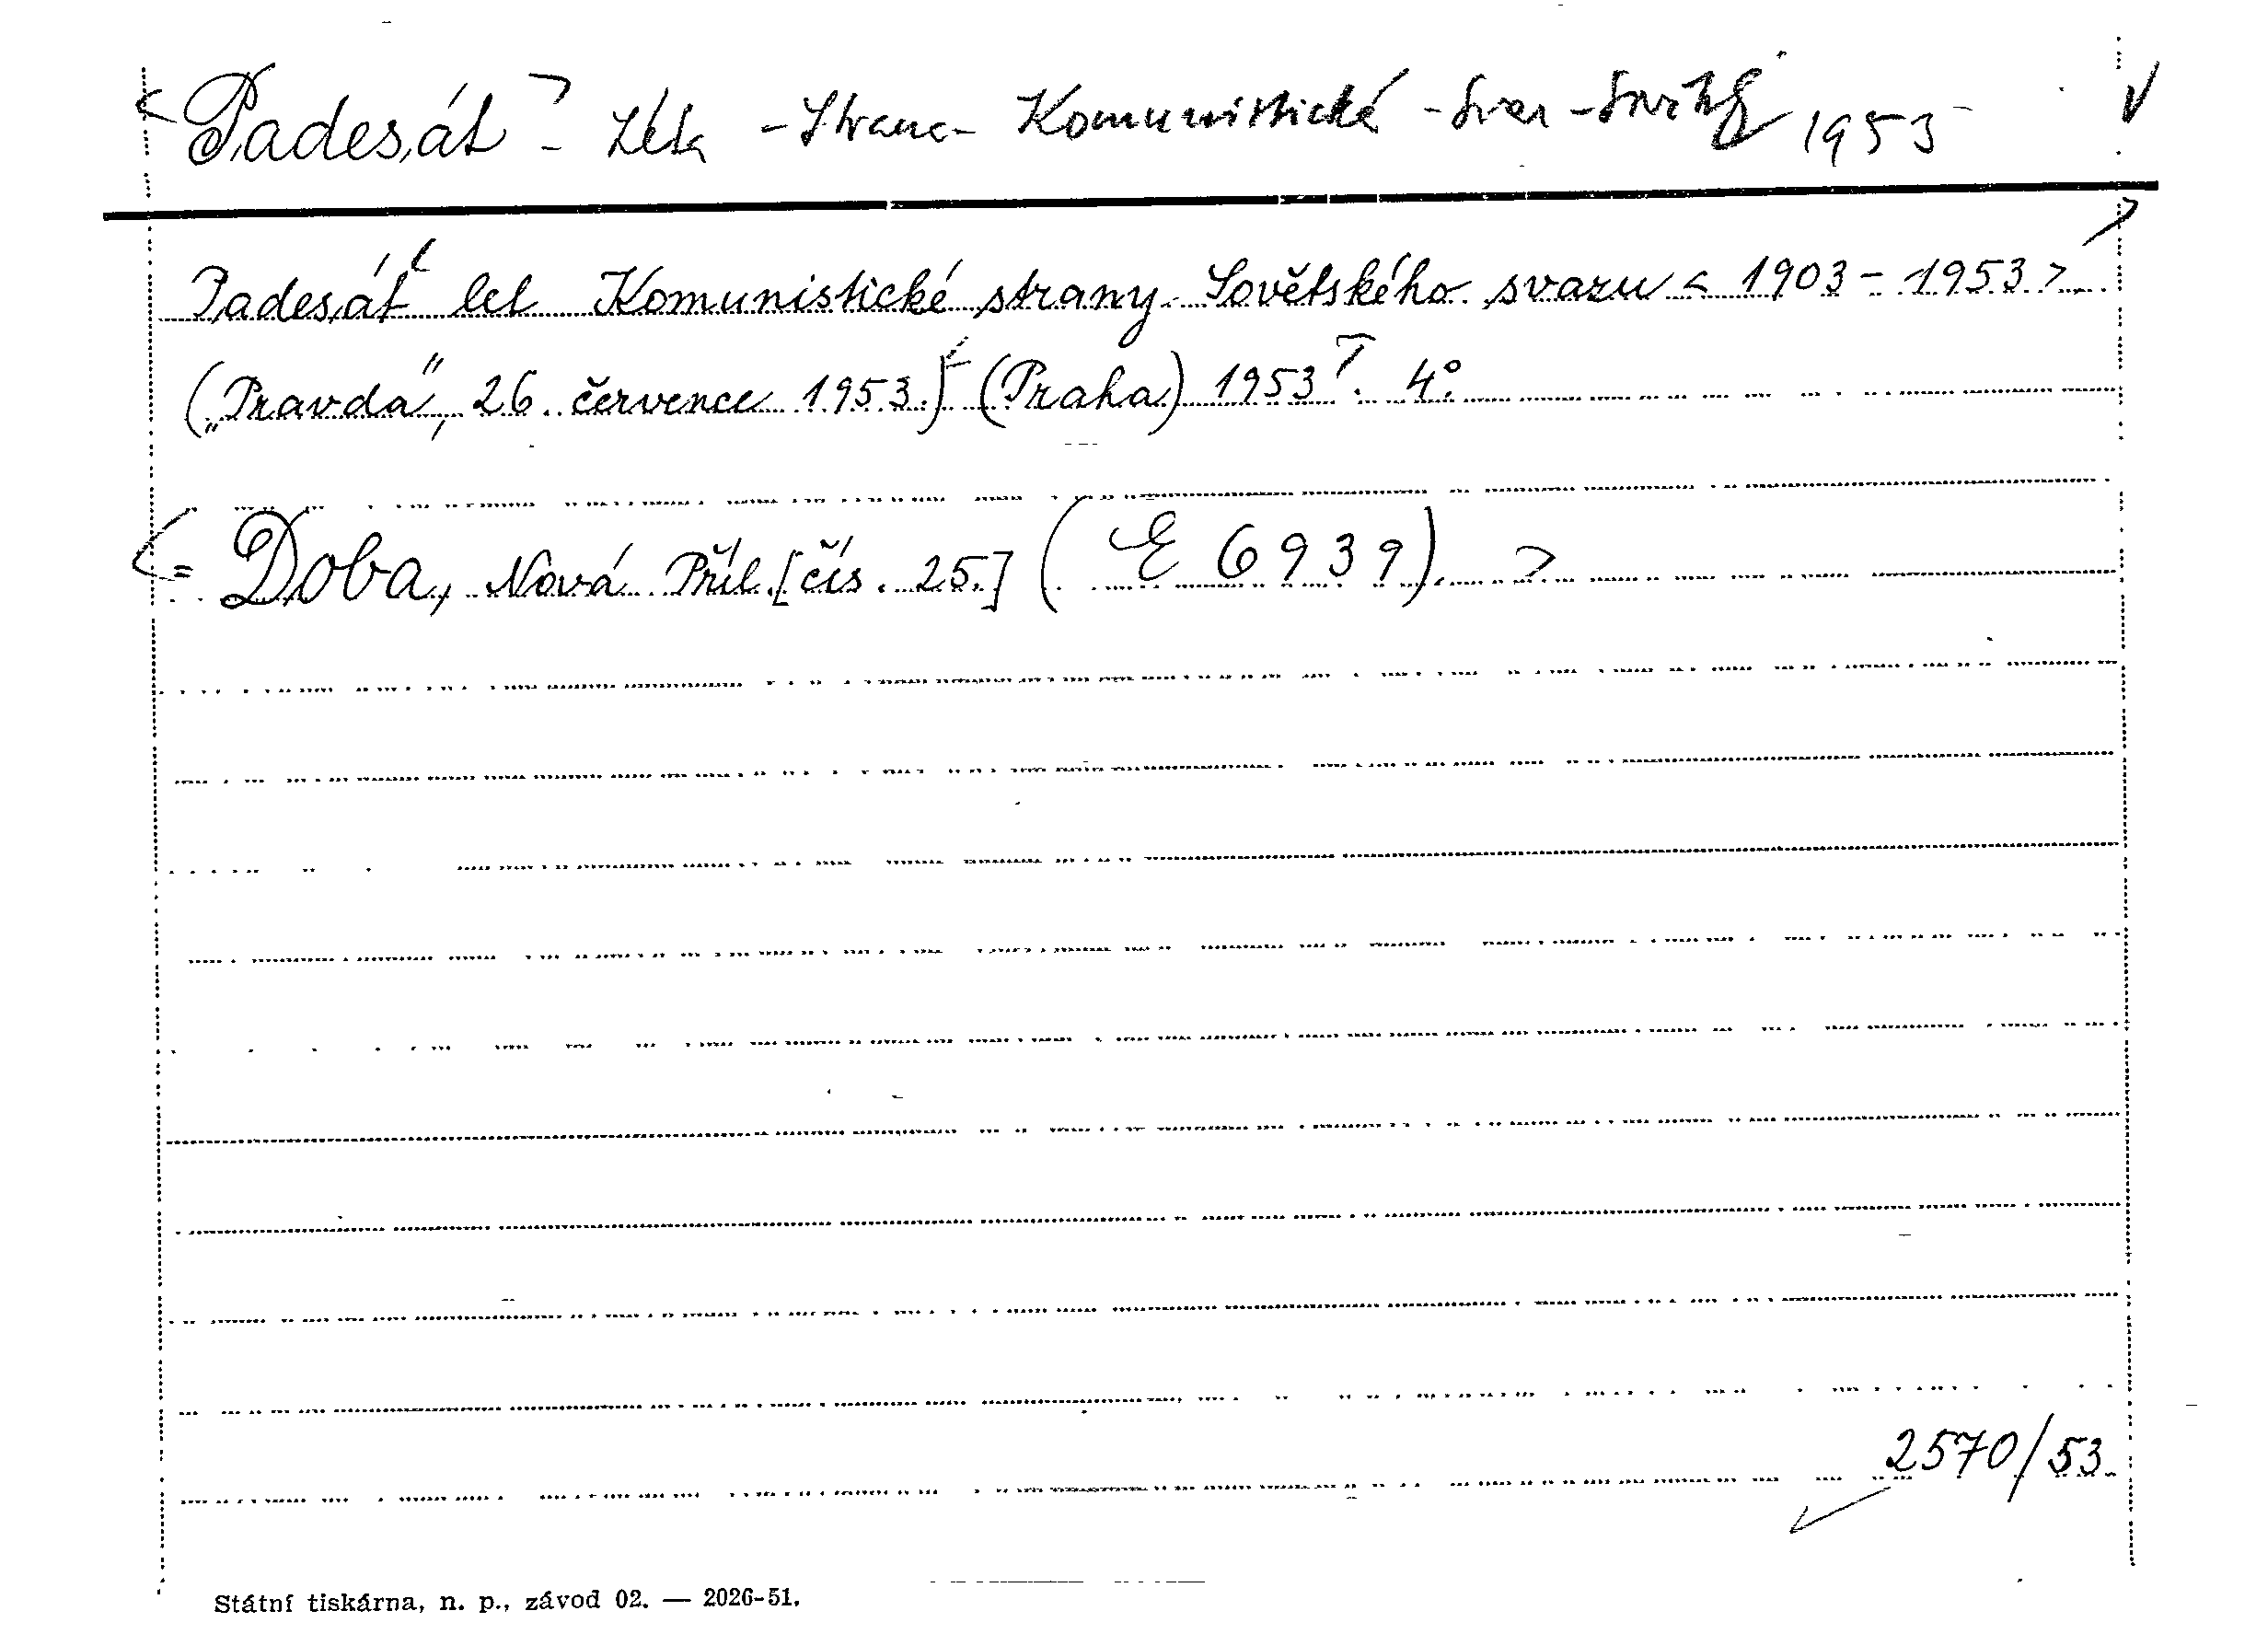 <Padesát> - Léta - Strana - Komunistická - Svaz - Sovětský 1953
Padesát let Komunistické strany Sovětského svazu <1903-1953>.
("Pravda", 26. července 1953.) (Praha) 1953. 4°.
<= Doba, Nová Příl. [čís. 25.] (E 6939).>
2570/53
Státní tiskárna, n. p., závod 02. — 2026-51.